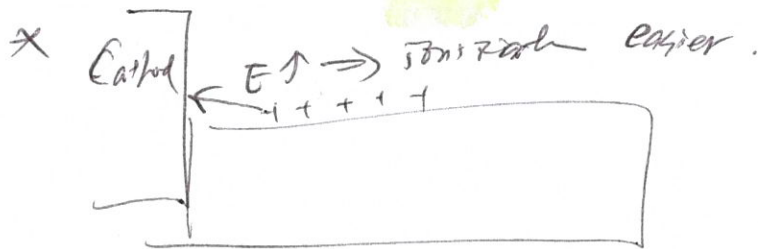 * Cathod E↑ ⇒ ionization easier.
+ + + + +